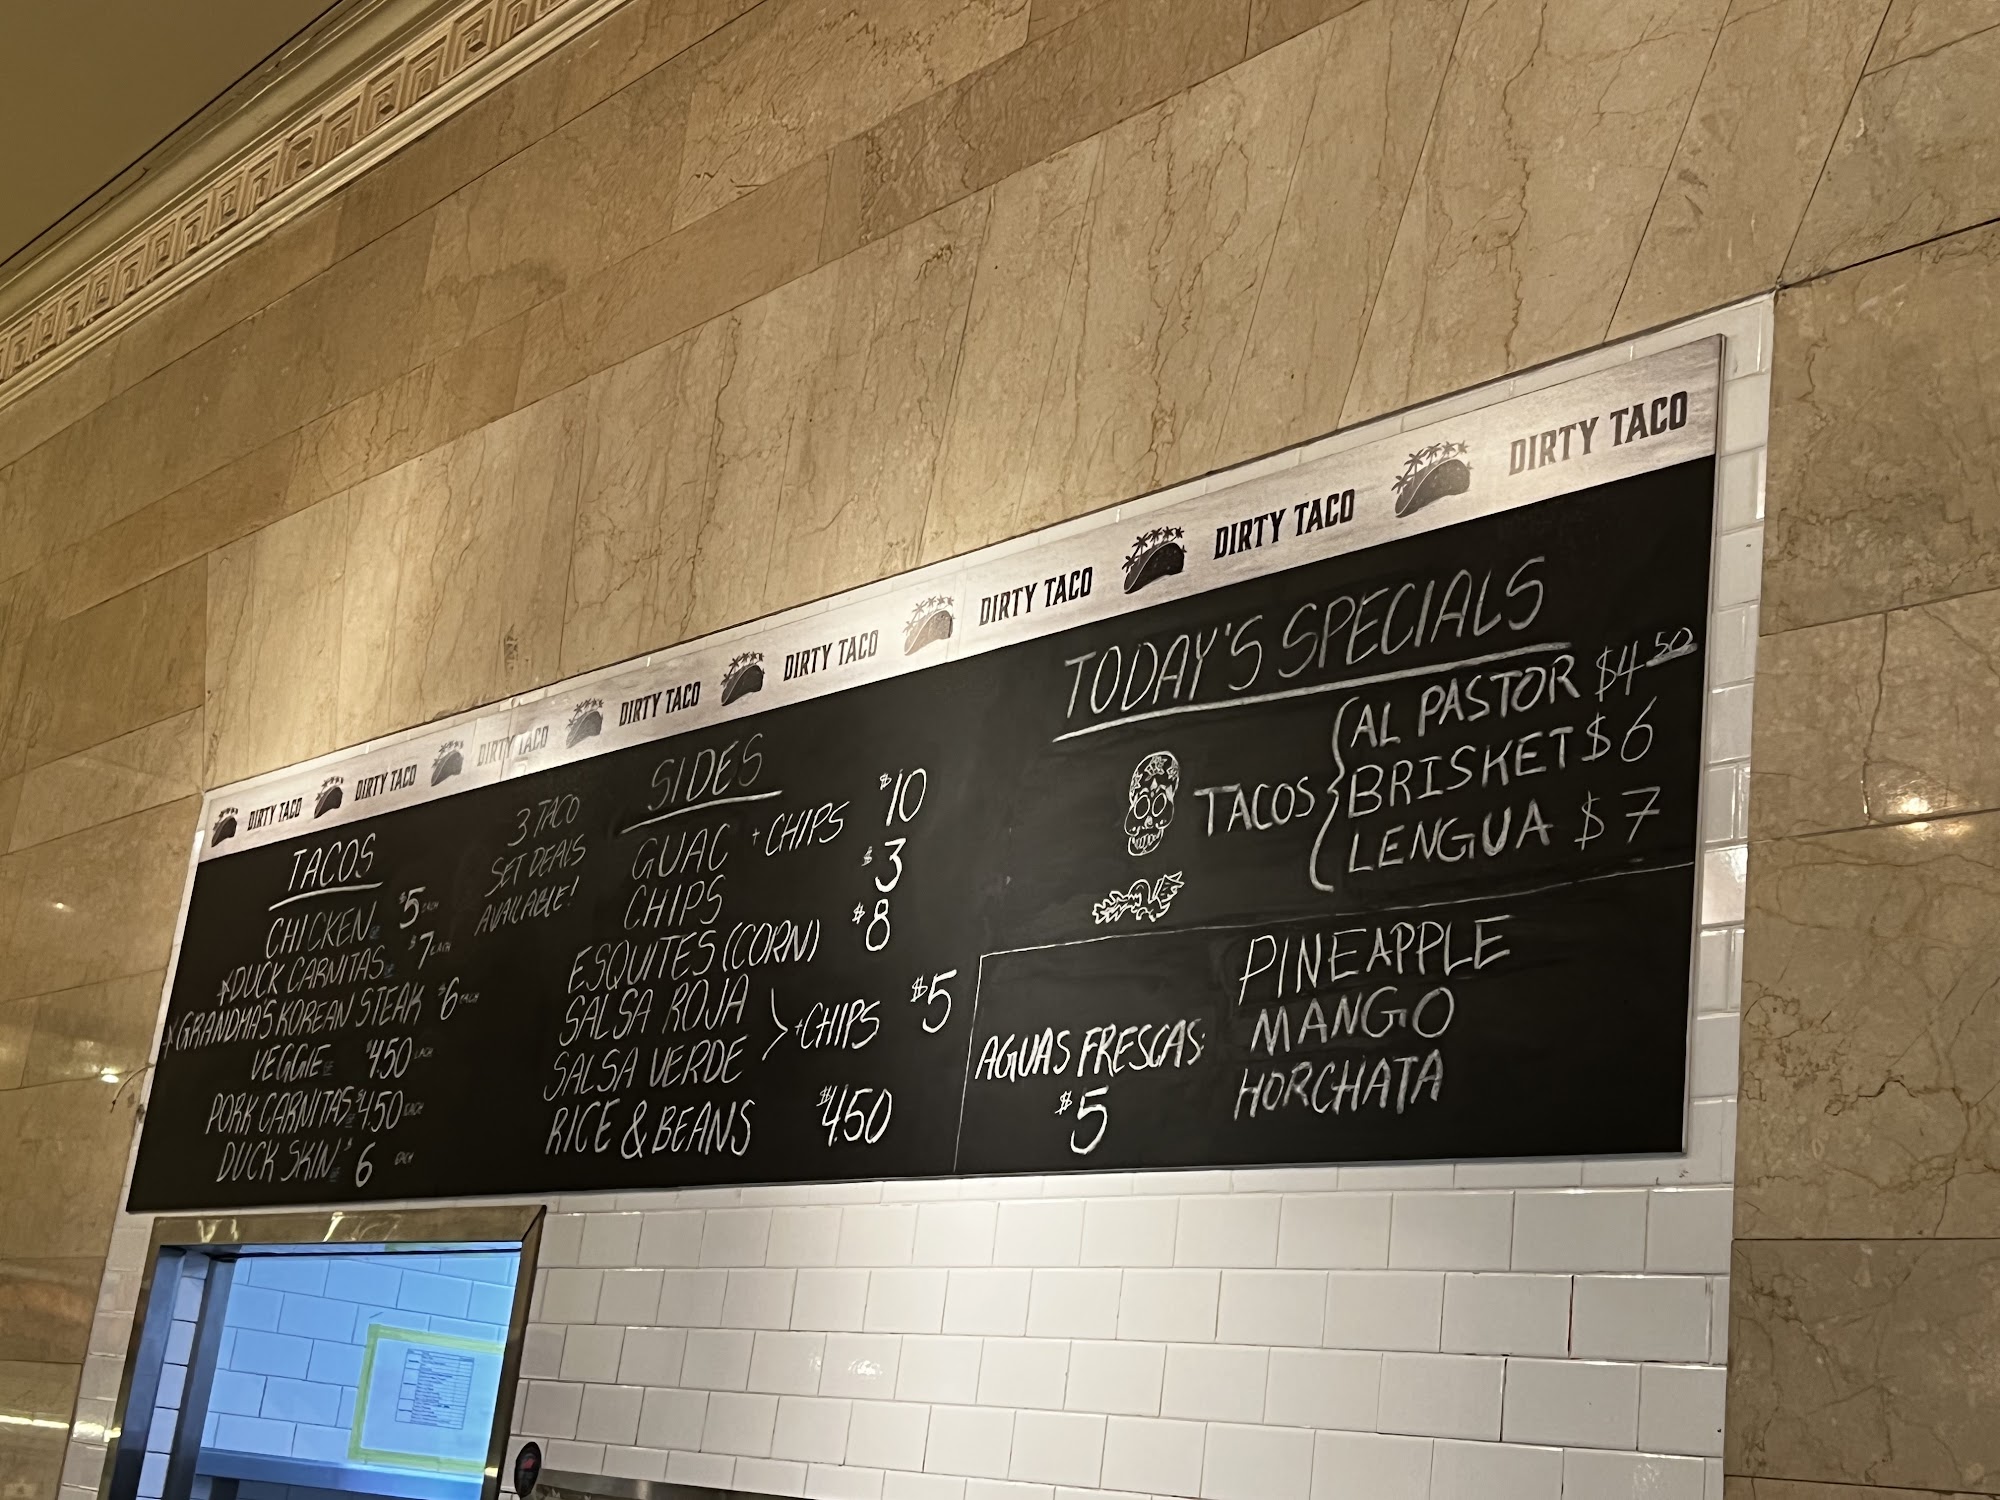 DIRTY TACO DIRTY TACO DIRTY TACO DIRTY TACO DIRTY TACO DIRTY TACO DIRTY TACO DIRTY TACO
TACOS
CHICKEN $5 EACH
DUCK CARNITAS $7 EACH
GRANDMA'S KOREAN STEAK $6 EACH
VEGGIE $4.50 EACH
PORK CARNITAS $4.50 EACH
DUCK SKIN $6 EACH
3 TACO
SET DEALS
AVAILABLE!
SIDES
GUAC + CHIPS $10
CHIPS $3
ESQUITES (CORN) $8
SALSA ROJA
SALSA VERDE
+CHIPS $5
RICE & BEANS $4.50
TODAY'S SPECIALS
TACOS
AL PASTOR $4.50
BRISKET $6
LENGUA $7
AGUAS FRESCAS:
$5
PINEAPPLE
MANGO
HORCHATA